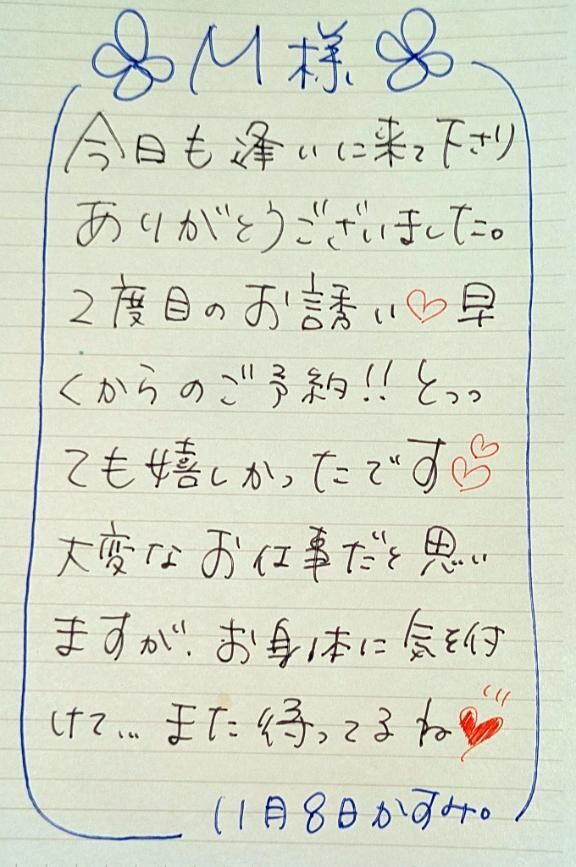 M様
今日も逢いに来て下さり
ありがとうございました。
2度目のお誘い♡早
くからのご予約!!とっっ
ても嬉しかったです♡♡
大変なお仕事だと思い
ますが、お身体に気を付
けて...また待ってるね♥
11月8日かすみ。